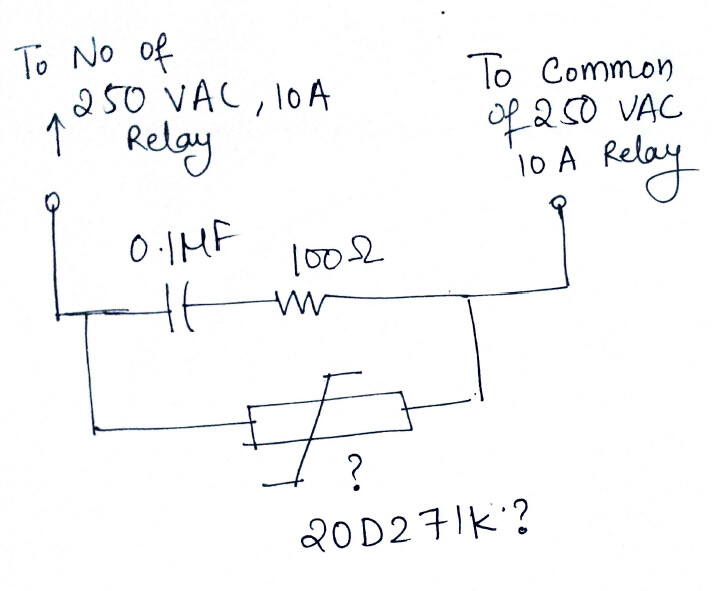 To No of
250 VAC, 10A
Relay
To Common
of 250 VAC
10 A Relay
0.1MF
100Ω
?
20D271K?